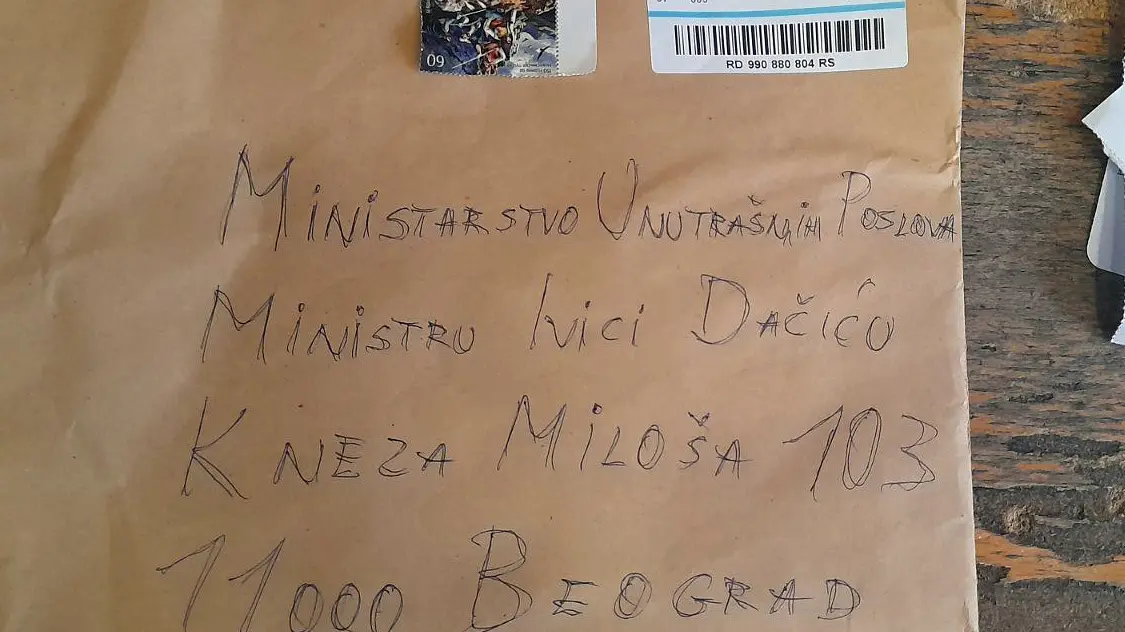 09
RD 990 880 804 RS
MINISTARSTVO UNUTRAŠNJIH POSLOVA
MINISTRU IVICI DAČIĆU
KNEZA MILOŠA 103
11000 BEOGRAD